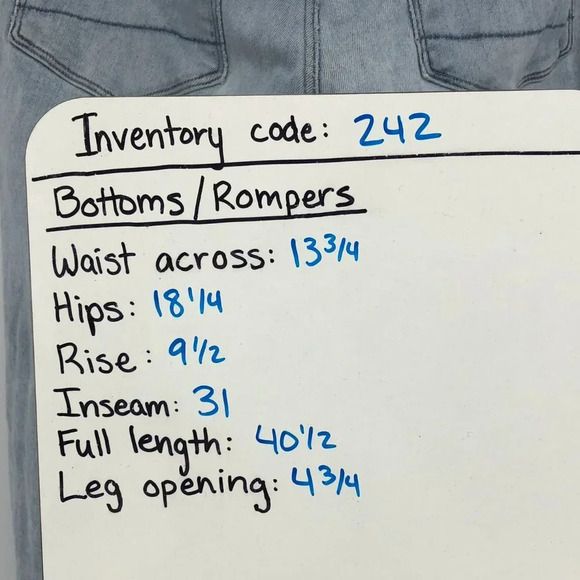 Inventory code: 242
Bottoms/Rompers
Waist across: 13 3/4
Hips: 18 1/4
Rise: 9 1/2
Inseam: 31
Full length: 40 1/2
Leg opening: 4 3/4